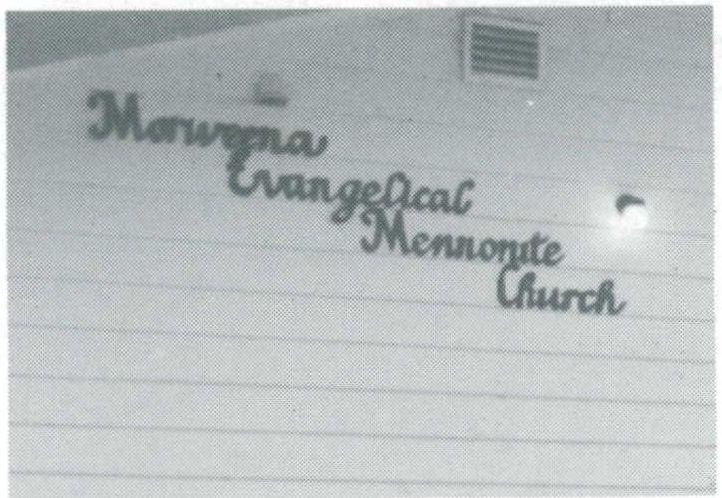 Morweena
Evangelical
Mennonite
Church